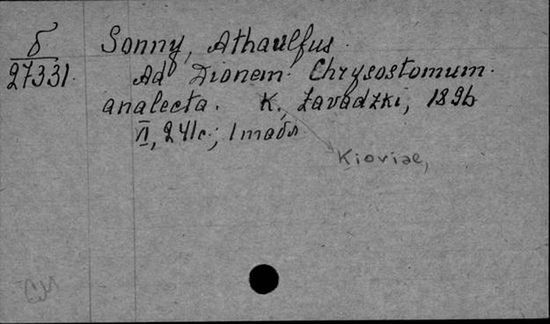 б
27331.
Sonny, Athaulfus.
Ad Dionem Chrysostomum
analecta. K. Zavadzki, 1896
II, 241c.; 1 табл
Kioviae,
СИ